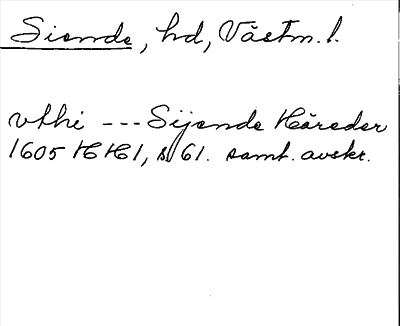 Siende, hd, Västm. l.
vthi --- Sijende Häreder
1605 HH 1, s 61. samt. avskr.